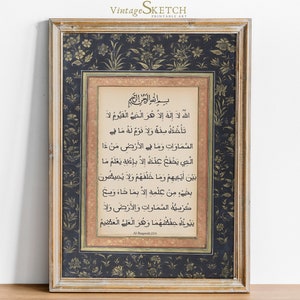 VintageSKETCH
PRINTABLE ART
بسم الله الرحمن الرحيم
الله لا إله إلا هو الحي القيوم لا
تأخذه سنة ولا نوم له ما في
السماوات وما في الأرض من ذا
الذي يشفع عنده إلا بإذنه يعلم ما
بين أيديهم وما خلفهم ولا يحيطون
بشيء من علمه إلا بما شاء وسع
كرسيه السماوات والأرض ولا
يئوده حفظهما وهو العلي العظيم
Al-Baqarah 255